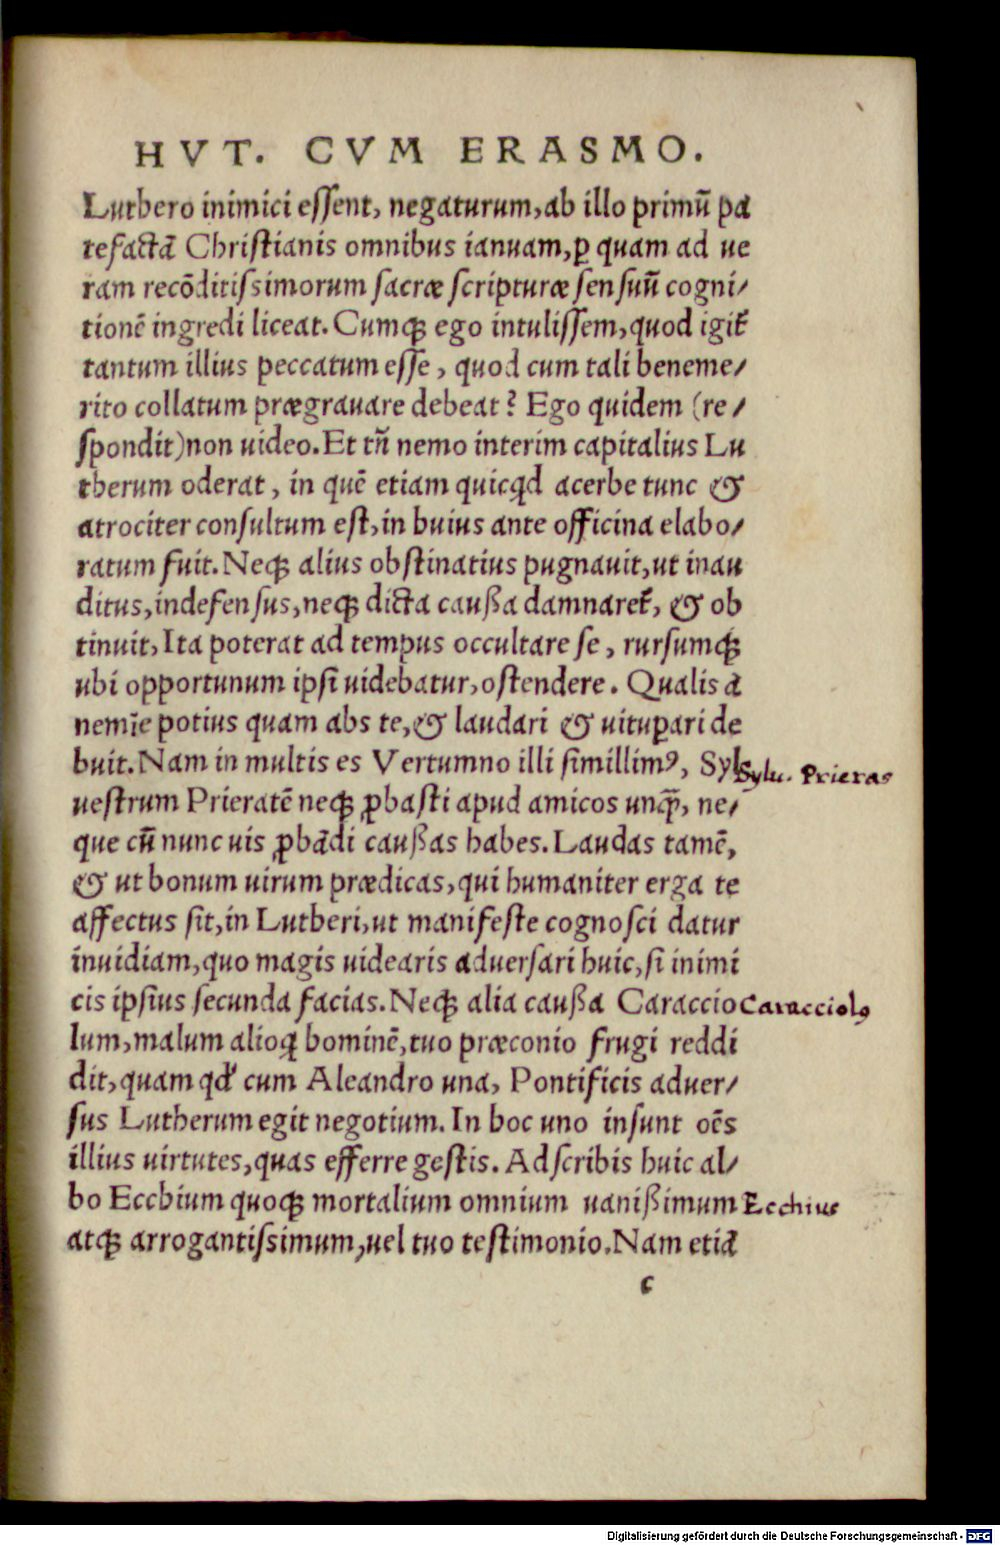 HVT. CVM ERASMO.
Luthero inimici essent, negaturum, ab illo primũ pa
tefactã Christianis omnibus ianuam, ꝑ quam ad ue
ram recõditissimorum sacræ scripturæ sensuũ cogni/
tionẽ ingredi liceat. Cumqȝ ego intulissem, quod igit̃
tantum illius peccatum esse, quod cum tali beneme/
rito collatum prægrauare debeat? Ego quidem (re/
spondit) non uideo. Et tñ nemo interim capitalius Lu
therum oderat, in quẽ etiam quicꝗd acerbe tunc &
atrociter consultum est, in huius ante officina elabo/
ratum fuit. Neqȝ alius obstinatius pugnauit, ut inau
ditus, indefensus, neqȝ dicta caußa damnaret̃, & ob
tinuit, Ita poterat ad tempus occultare se, rursumqȝ
ubi opportunum ipsi uidebatur, ostendere. Qualis a
nemĩe potius quam abs te, & laudari & uituꝑari de
buit. Nam in multis es Vertumno illi simillimꝰ, Syl
Sylu. Prieras
uestrum Prieratẽ neqȝ ꝓbasti apud amicos unꝗ̃, ne/
que cũ nunc uis ꝓbãdi caußas habes. Laudas tamẽ,
& ut bonum uirum prædicas, qui humaniter erga te
affectus sit, in Lutheri, ut manifeste cognosci datur
inuidiam, quo magis uidearis aduersari huic, si inimi
cis ipsius secunda facias. Neqȝ alia caußa Caraccio
Caracciolꝰ
lum, malum alioꝗ hominẽ, tuo præconio frugi reddi
dit, quam qđ cum Aleandro una, Pontificis aduer/
sus Lutherum egit negotium. In hoc uno insunt oẽs
illius uirtutes, quas efferre gestis. Adscribis huic al/
bo Ecchium quoqȝ mortalium omnium uanißimum
Ecchius
atqȝ arrogantissimum, uel tuo testimonio. Nam etiã
c
Digitalisierung gefördert durch die Deutsche Forschungsgemeinschaft - DFG